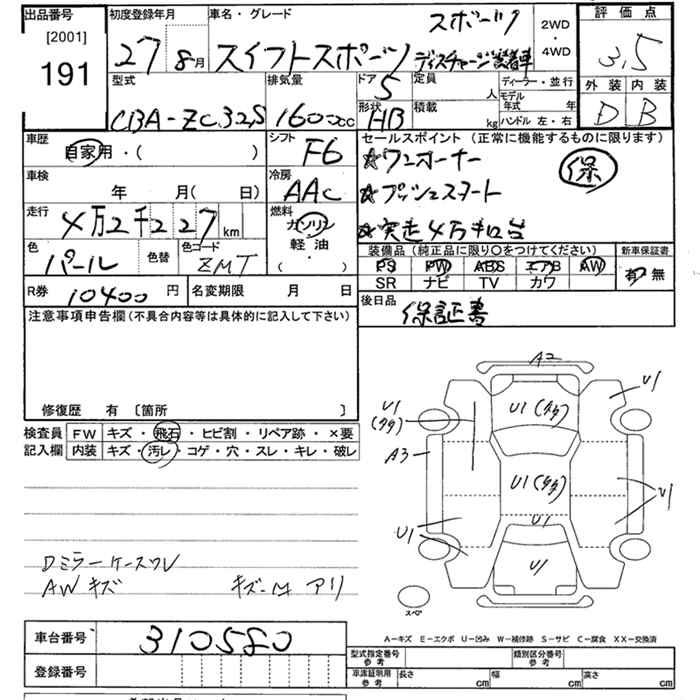 出品番号
[2001]
191
初度登録年月
27 8月
車名・グレード
スポーツ
スイフトスポーツ ディスチャージ装着車
2WD
・
4WD
評価点
3.5
外装 内装
D B
型式
CBA-ZC32S
排気量
1600cc
ドア
5
形状
HB
定員
人
積載
kg
ディーラー・並行
モデル年式 年
ハンドル 左・右
車歴
自家用・( )
シフト
F6
車検
年 月( 日)
冷房
AAC
走行
4万2千227km
燃料
ガソリン
軽油
( ・ )
色
パール
色替
色コード
ZMT
R券
10400円
名変期限 月 日
セールスポイント(正常に機能するものに限ります)
☆ワンオーナー
☆プッシュスタート
☆実走4万キロ台
保
装備品(純正品に限り〇をつけてください)
PS PW ABS エアB AW
SR ナビ TV カワ
新車保証書
有・無
後日品
保証書
注意事項申告欄(不具合内容等は具体的に記入して下さい)
修復歴 有 〔箇所 〕
検査員
記入欄
FW キズ・飛石・ヒビ割・リペア跡・×要
内装 キズ・汚レ・コゲ・穴・スレ・キレ・破レ
Dミラーケースワレ
AWキズ
アリ
A2
U1
U1(タタ)
U1
(タタ)
A3
U1(タタ)
U1
U1
U1
U1
スペア
A-キズ E-エクボ U-凹み W-補修跡 S-サビ C-腐食 XX-交換済
車台番号
310580
登録番号
型式指定番号
参考
類別区分番号
参考
車庫証明用
参考
長さ cm 幅 cm 高さ cm